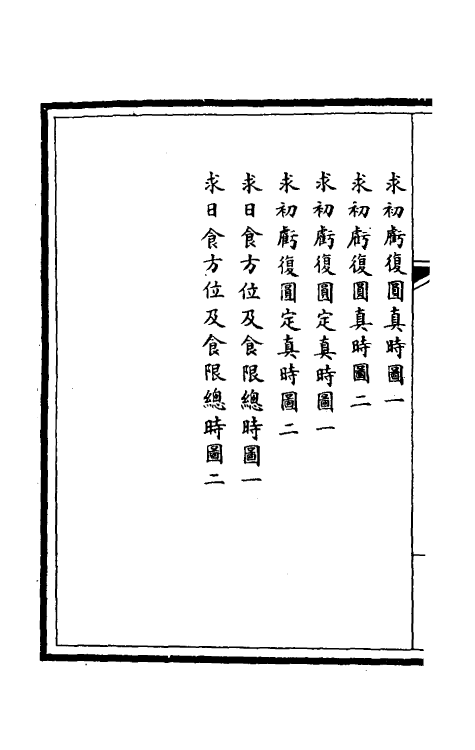 求初虧復圓真時圖一
求初虧復圓真時圖二
求初虧復圓定真時圖一
求初虧復圓定真時圖二
求日食方位及食限總時圖一
求日食方位及食限總時圖二